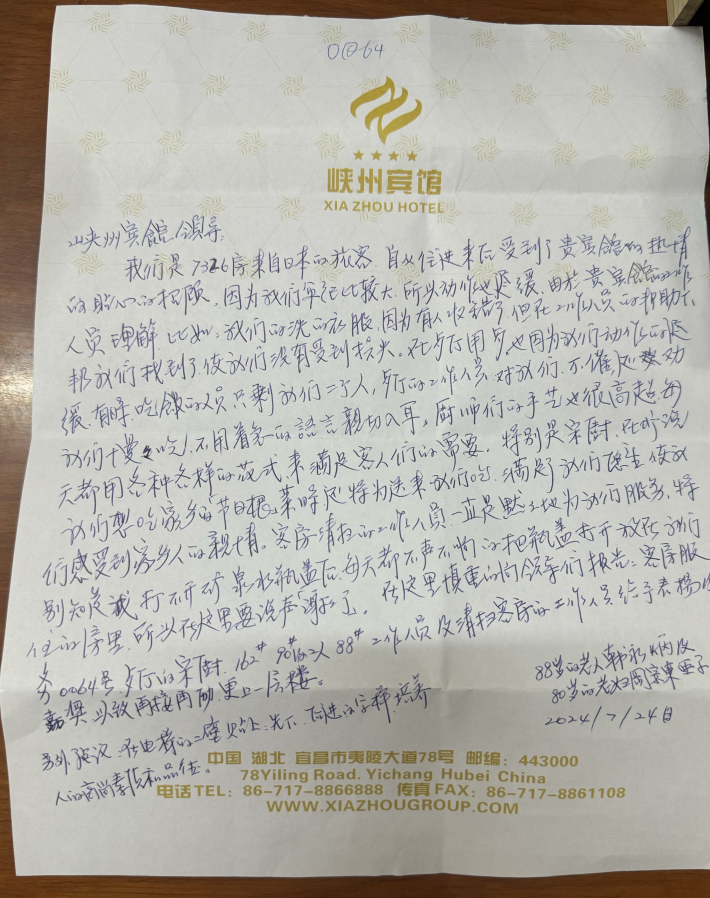 0064
峡州宾馆
XIA ZHOU HOTEL
峡州宾馆领导:
我们是7326房来自日本的旅客 自从住进来后受到了贵宾馆的热情
的贴心的招顾,因为我们年纪比较大,所以动作也迟缓,由於贵宾馆的工作
人员理解 比如:我们的洗的衣服,因为有人收错了,但在工作人员的帮助下,
帮我们找到了,使我们没有受到损失。在歺厅用歺,也因为我们动作的迟
缓,有时吃饭的人只剩我们二个人,歺厅的工作人员对我们不催促
我们慢慢吃,不用着急的語言親切入耳。厨师们的手艺也很高超每
天都用各种各样的花式,来满足客人们的需要。特别是宋厨,在听说
我们想吃家乡的菜时还特为送来给我们吃,满足了我们 使我
们感受到家乡人的親情。客房清扫的工作人员一直是默々地为我们服务,特
别知道我打不开矿泉水瓶盖后,每天都不声不响的把瓶盖打开放在我们
住的房里,所以在这里要说声謝々了。在这里慎重的向领导们报告:客房服
务0064号,歺厅的宋厨,162# 90#以及88#工作人员及清扫客房的工作人员给予表揚
嘉奖,以致再接再励,更上一层楼。
88岁的老人韩永炳及
80岁的老妇周宗東亜子
2024/7/24日
另外建议:在电梯的 贴上:先下后进的字样,培养
人们高尚素质和品位。
中国 湖北 宜昌市夷陵大道78号 邮编: 443000
78Yiling Road. Yichang Hubei China
电话TEL: 86-717-8866888 传真FAX: 86-717-8861108
WWW.XIAZHOUGROUP.COM